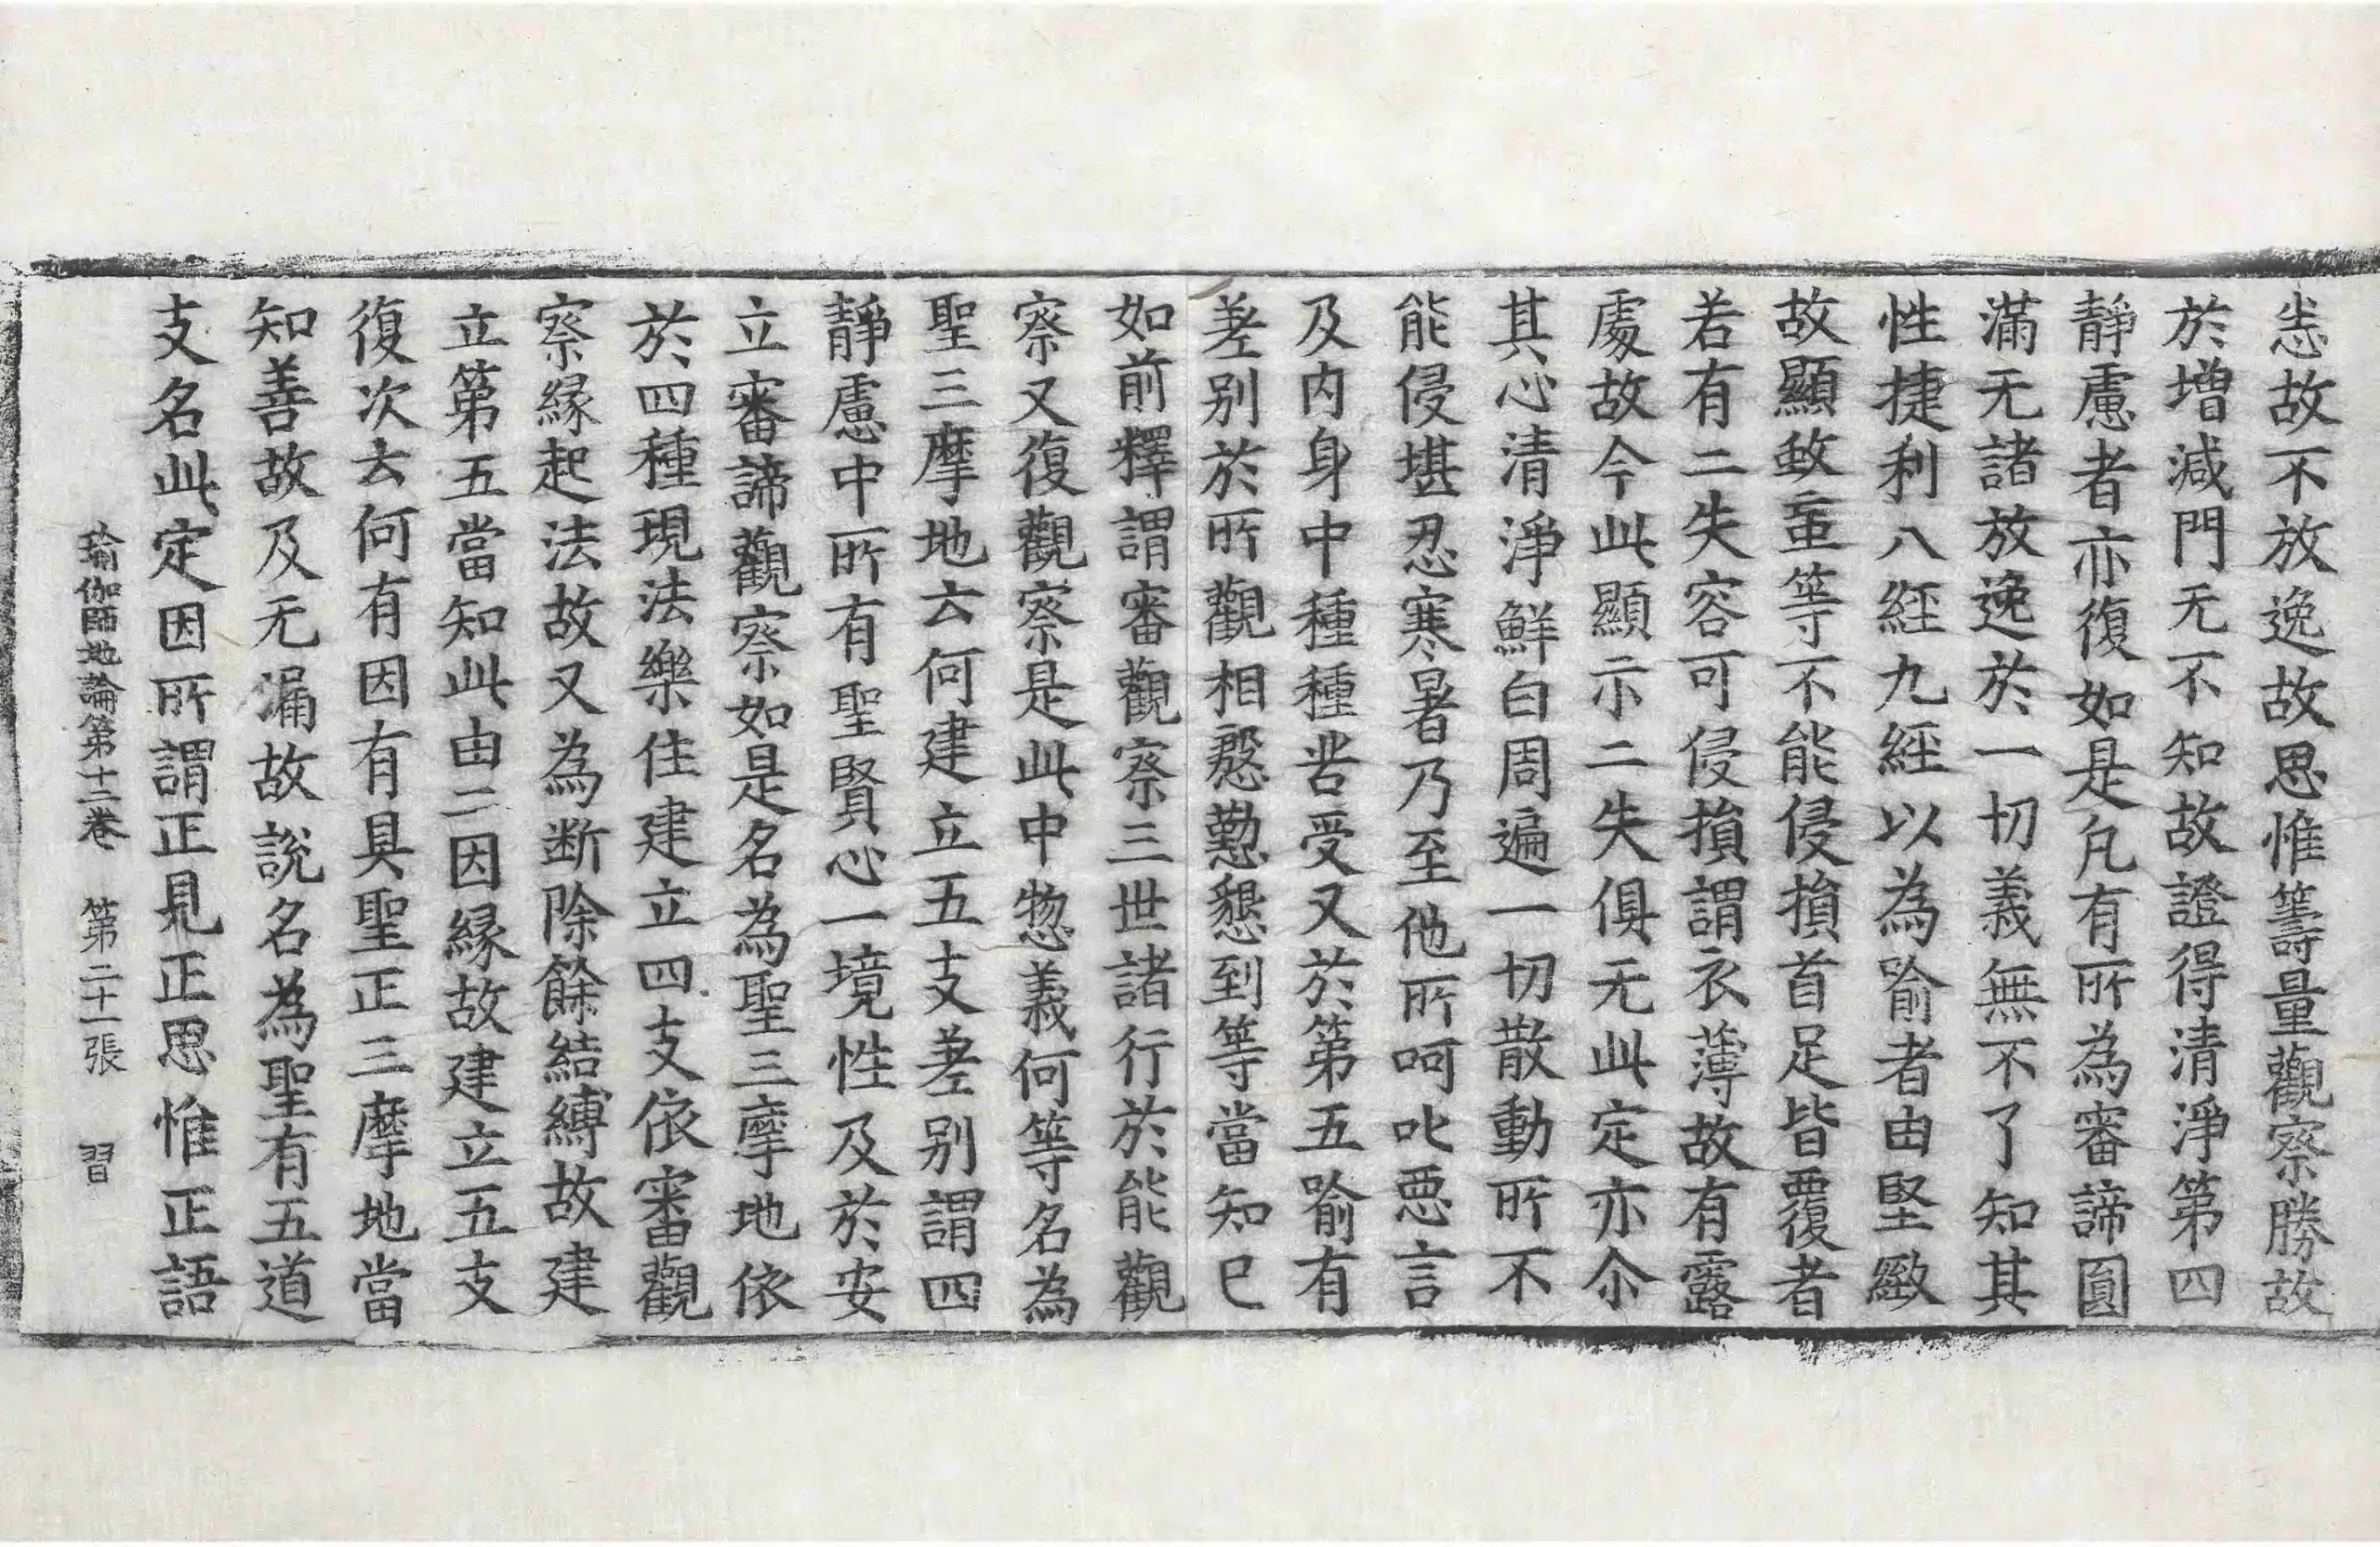 恚故不放逸故思惟籌量觀察勝故
於增減門无不知故證得清淨第四
靜慮者亦復如是凡有所為審諦圓
滿无諸放逸於一切義無不了知其
性捷利八經九經以為喻者由堅緻
故顯蚊䖟等不能侵損首足皆覆者
若有二失容可侵損謂衣薄故有露
處故今此顯示二失俱无此定亦尒
其心清淨鮮白周遍一切散動所不
能侵堪忍寒暑乃至他所呵叱惡言
及內身中種種苦受又於第五喻有
差別於所觀相慇懃懇到等當知已
如前釋謂審觀察三世諸行於能觀
察又復觀察是此中惣義何等名為
聖三摩地云何建立五支差別謂四
靜慮中所有聖賢心一境性及於安
立審諦觀察如是名為聖三摩地依
於四種現法樂住建立四支依審觀
察緣起法故又為断除餘結縛故建
立第五當知此由二因緣故建立五支
復次云何有因有具聖正三摩地當
知善故及无漏故說名為聖有五道
支名此定因所謂正見正思惟正語
瑜伽師地論第十二卷　第二十一張　習